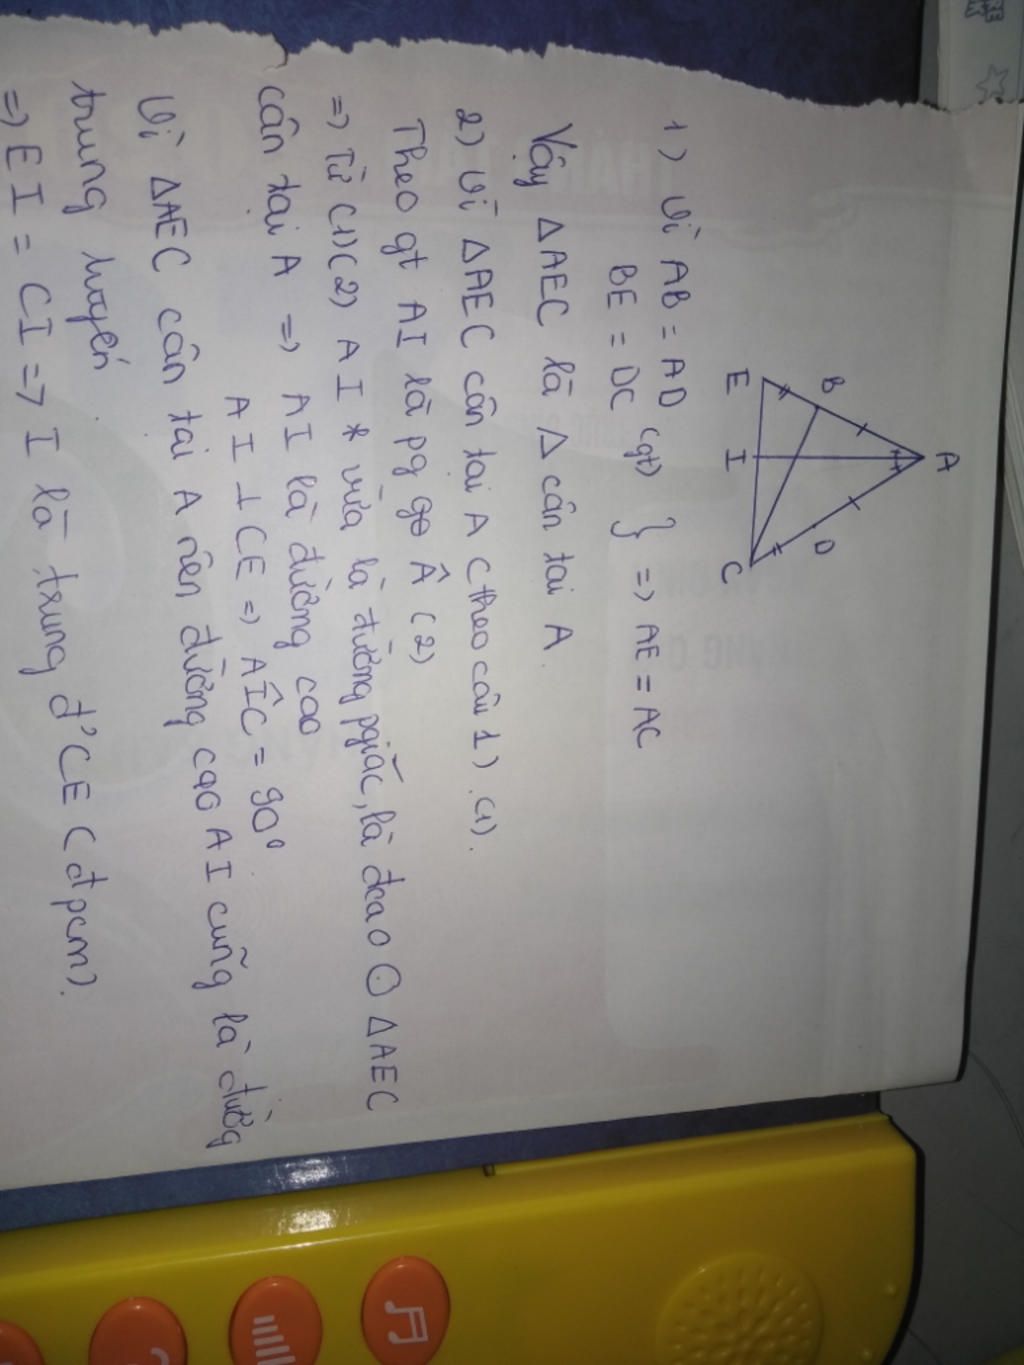 A
B
D
E
I
C
1) Vì AB = AD
BE = DC (gt) } => AE = AC
Vậy ΔAEC là Δ cân tại A.
2) Vì ΔAEC cân tại A (theo câu 1) (1).
Theo gt AI là pg Â (2)
=> Từ (1)(2) AI vừa là đường pgiác, là đcao ΔAEC
cân tại A => AI là đường cao
AI ⊥ CE => AÎC = 90°
Vì ΔAEC cân tại A nên đường cao AI cũng là đường
trung tuyến
=> EI = CI => I là trung đ' CE (đpcm).